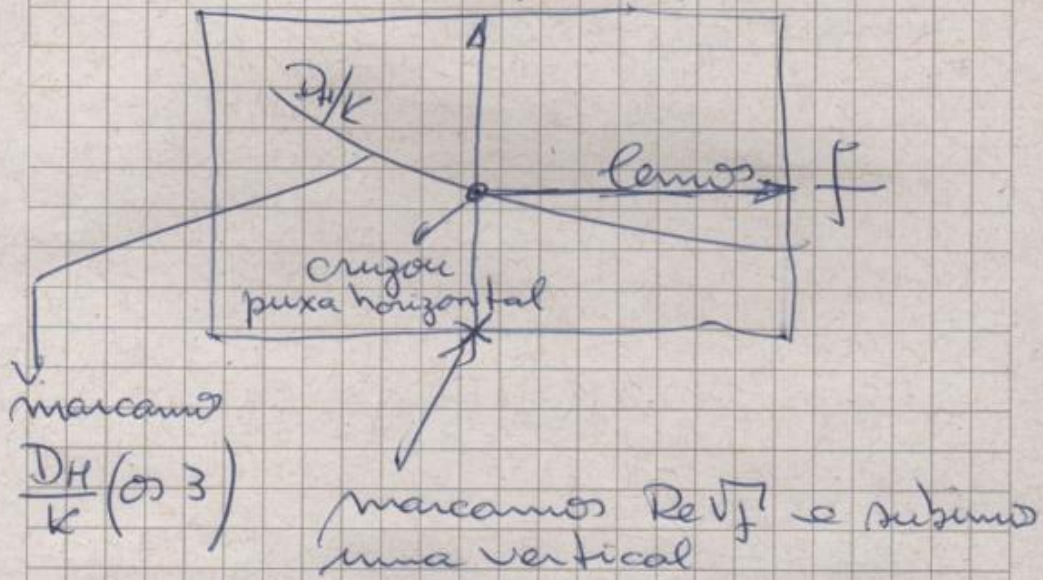 DH/K
lemos f
cruzou
puxa horizontal
marcamos
DH/K (os 3)
marcamos Re√f e subimos
uma vertical